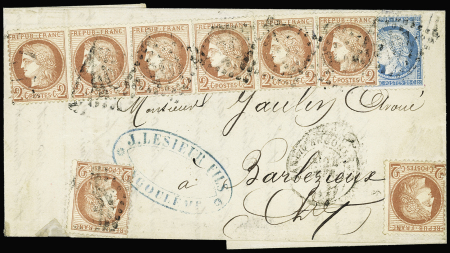 REPUB·FRANC REPUB·FRANC REPUB·FRANC REPUB·FRANC REPUB·FRANC REPUB·FRANC
2 POSTES 2 2 POSTES 2 2 POSTES 2 2 POSTES 2 2 POSTES 2 2 POSTES 2
Monsieur Gaulier Avoué
J. LESIEUR FILS
ANGOULÊME
à Barbezieux
Cht
REPUB·FRANC
2 POSTES 2
REPUB·FRANC
2 POSTES 2